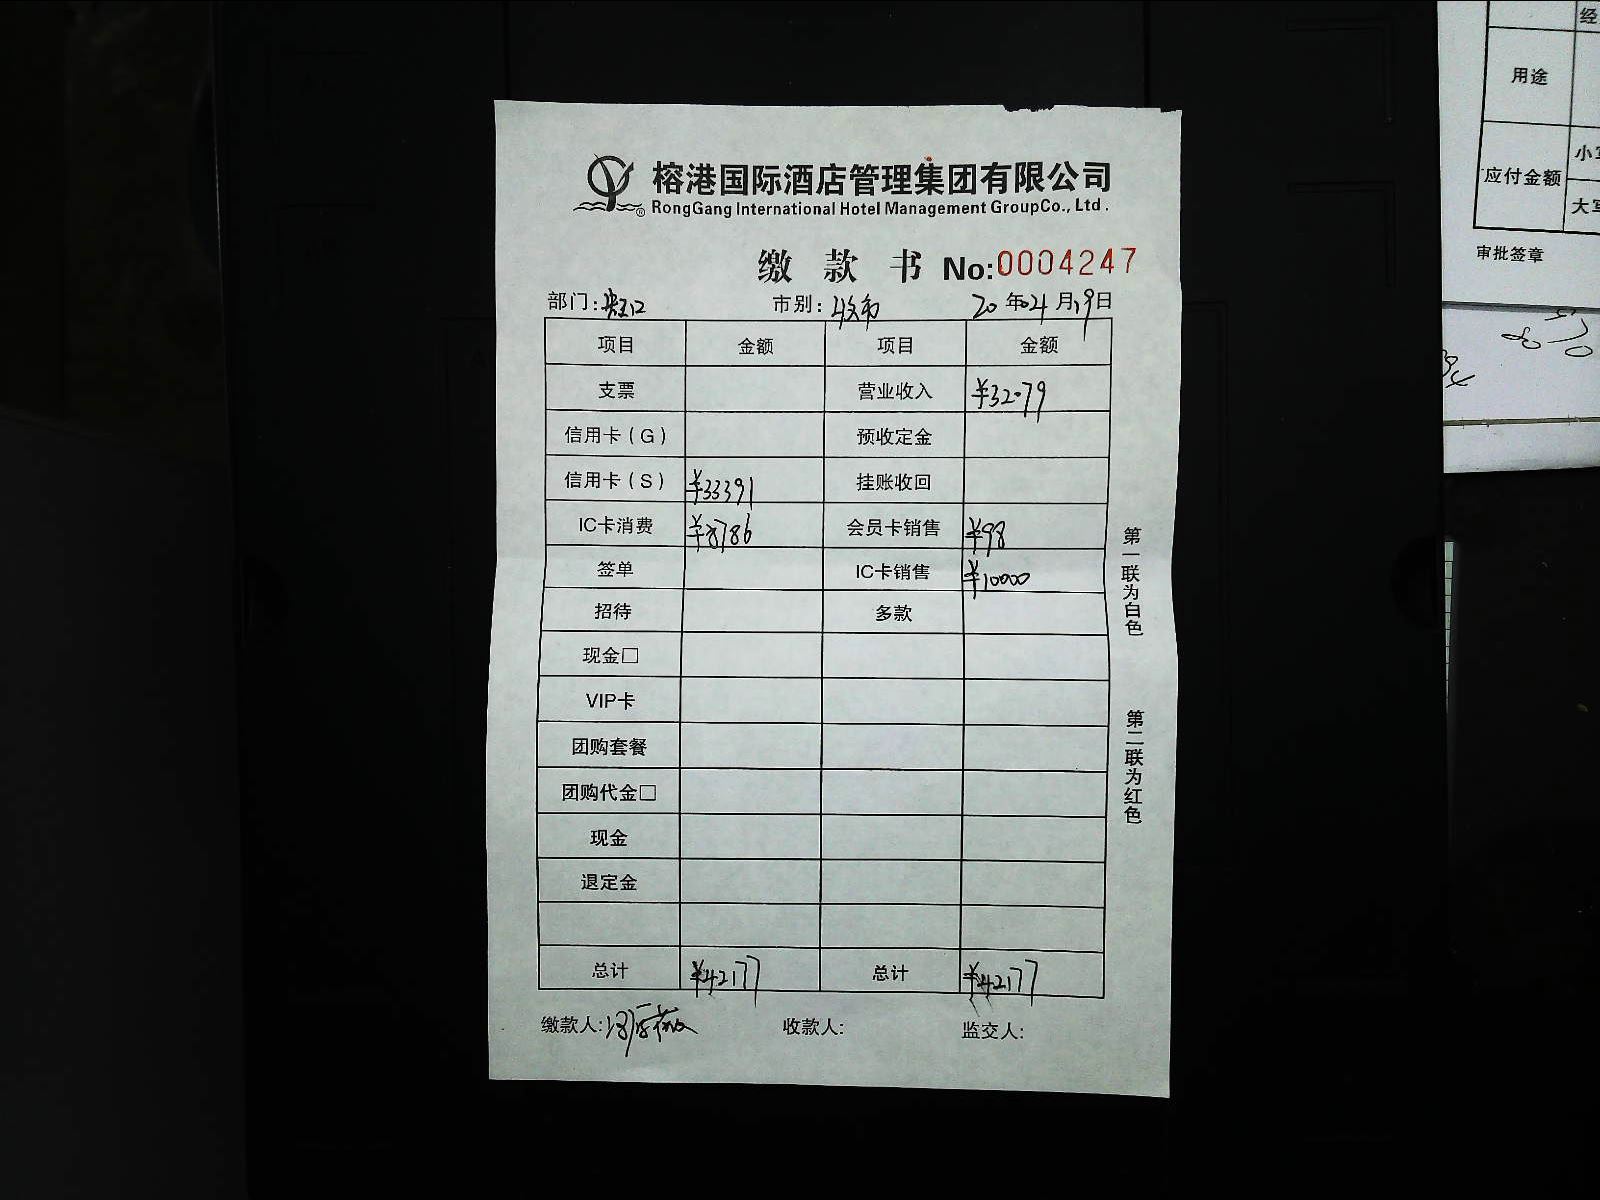 榕港国际酒店管理集团有限公司
RongGang International Hotel Management GroupCo., Ltd.
缴款书 No:0004247
部门: 市别: 20年04月19日
项目 金额 项目 金额
支票 营业收入 ¥32079
信用卡(G) 预收定金
信用卡(S) ¥33391 挂账收回
IC卡消费 ¥8786 会员卡销售 ¥98
签单 IC卡销售 ¥10000
招待 多款
现金□
VIP卡
团购套餐
团购代金□
现金
退定金
总计 ¥42177 总计 ¥42177
缴款人: 收款人: 监交人:
第一联为白色
第二联为红色
经
用途
应付金额
小写
大写
审批签章